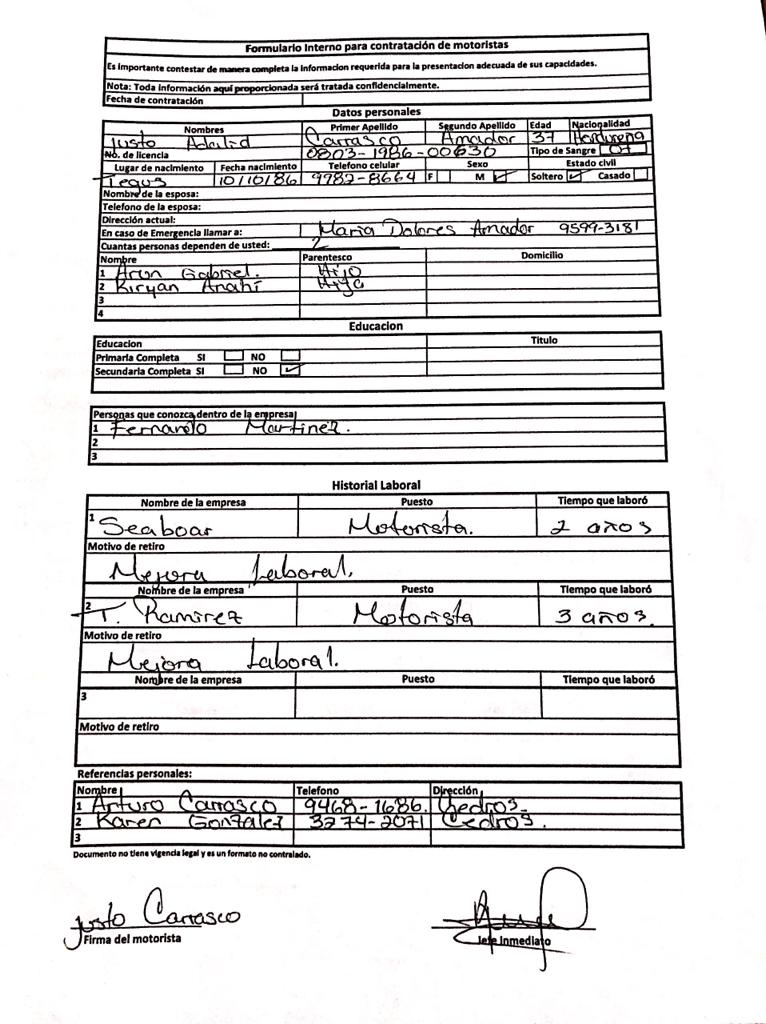 Formulario Interno para contratación de motoristas
Es importante contestar de manera completa la informacion requerida para la presentacion adecuada de sus capacidades.
Nota: Toda información aquí proporcionada será tratada confidencialmente.
Fecha de contratación
Datos personales
Nombres Primer Apellido Segundo Apellido Edad Nacionalidad
Justo Adalid Carrasco Amador 37 Hondureña
No. de licencia 0803-1986-00630 Tipo de Sangre O+
Lugar de nacimiento Fecha nacimiento Telefono celular Sexo Estado civil
Tegus 10/10/86 9982-8664 F M ✓ Soltero ✓ Casado
Nombre de la esposa:
Telefono de la esposa:
Dirección actual:
En caso de Emergencia llamar a: Maria Dolores Amador 9599-3181
Cuantas personas dependen de usted: 2
Nombre Parentesco Domicilio
1 Gabriel. Hijo
2 Anahí Hija
3
4
Educacion
Educacion Titulo
Primaria Completa SI NO
Secundaria Completa SI NO ✓
Personas que conozca dentro de la empresa
1 Fernando Martinez.
2
3
Historial Laboral
Nombre de la empresa Puesto Tiempo que laboró
1 Seaboar Motorista. 2 años
Motivo de retiro
Mejora Laboral.
Nombre de la empresa Puesto Tiempo que laboró
2 T. Ramirez Motorista 3 años.
Motivo de retiro
Mejora Laboral.
Nombre de la empresa Puesto Tiempo que laboró
3
Motivo de retiro
Referencias personales:
Nombre Telefono Dirección
1 Arturo Carrasco 9468-1686. Cedros.
2 Karen Gonzalez 3274-2071 Cedros.
3
Documento no tiene vigencia legal y es un formato no controlado.
Justo Carrasco
Firma del motorista Jefe Inmediato